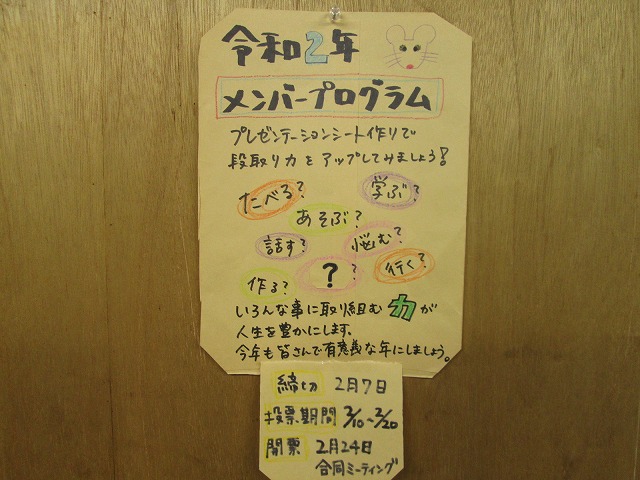 令和2年
メンバープログラム
プレゼンテーションシート作りで
段取り力をアップしてみましょう!
たべる?
学ぶ?
あそぶ?
話す?
悩む?
?
?
行く?
作る?
いろんな事に取り組む力が
人生を豊かにします。
今年も皆さんで有意義な年にしましょう。
締切 2月7日
投票期間 2/10~2/20
開票 2月24日
合同ミーティング